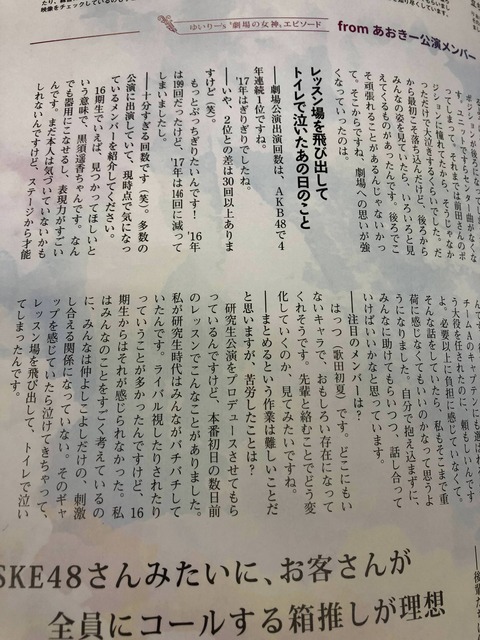 映像をチェックしているのも
ゆいりー's "劇場の女神"エピソード
from あおきー公演メンバー
ポジションが後ろになって
っただけで大泣きするくらいでした。だ
から最初こそ落ち込んだけど、後ろから
みんなの姿を見ていたら、いろいろと見
えてくるものがあったんです。後ろでこ
そ頑張れることがあるんじゃないかっ
て。そこからですね、劇場への思いが強
くなっていったのは。
レッスン場を飛び出して
トイレで泣いたあの日のこと
──劇場公演出演回数は、AKB48で4
年連続1位ですね。
'17年はぎりぎりでしたね。
──いや、2位との差は30回以上ありま
すけど(笑)。
もっとぶっちぎりたいんです! '16年
は199回だったけど、'17年は146回に減って
しまいました。
──十分すぎる回数です(笑)。多数の
公演に出演していて、現時点で気になっ
ているメンバーを紹介してください。
16期生でいえば、見つかってほしいと
いう意味で、黒須遥香ちゃんです。なん
でも器用にこなせるし、表現力がすごい
んです。まだ本人は気づいていないかも
しれないんですけど、ステージから才能
チームAのキャプテンにも選ばれ
う大役を任されたのに、頼もしいんです
よ。必要以上に負担に感じていなくて。
そんな話をしていたら、私もそこまで重
荷に感じなくてもいいのかなって思うよ
うになりました。自分で抱え込まずに、
みんなに助けてもらいつつ、話し合って
いけばいいかなと思っています。
──注目のメンバーは?
はっつ(歌田初夏)です。どこにもい
ないキャラで、おもしろい存在になって
くれそうです。先輩と絡むことでどう変
化していくのか、見てみたいですね。
──まとめるという作業は難しいことだ
と思いますが、苦労したことは?
研究生公演をプロデュースさせてもら
のレッスンでこんなことがありました。
私が研究生時代はみんながバチバチして
いたんです。ライバル視したりされたり
っていうことが多かったんですけど、16
期生からはそれが感じられなかった。私
はみんなのことをすごく考えているの
に、みんなは仲よしこよしだけの、刺激
し合える関係になっていない。そのギャ
ップを感じていたら泣けてきちゃって、
レッスン場を飛び出して、トイレで泣い
てしまったんです。
SKE48さんみたいに、お客さんが
全員にコールする箱推しが理想